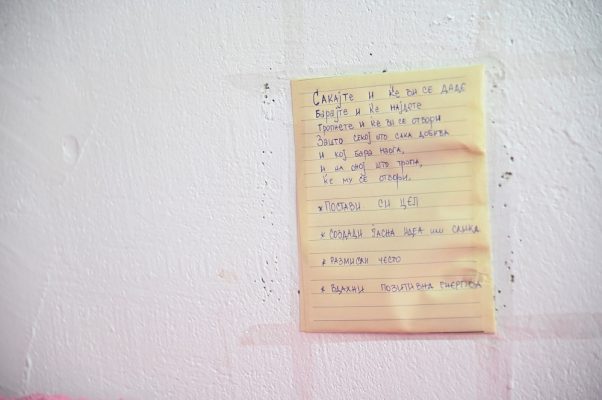 Сакајте и ќе ви се даде
Барајте и ќе најдете
Тропнете и ќе ви се отвори
Зашто секој што сака добива
и кој бара наоѓа,
и на оној што тропа,
ќе му се отвори.
* ПОСТАВИ СИ ЦЕЛ
* СОЗДАДИ ЈАСНА ИДЕА или СЛИКА
* РАЗМИСЛИ ЧЕСТО
* ВДАХНИ ПОЗИТИВНА ЕНЕРГИЈА